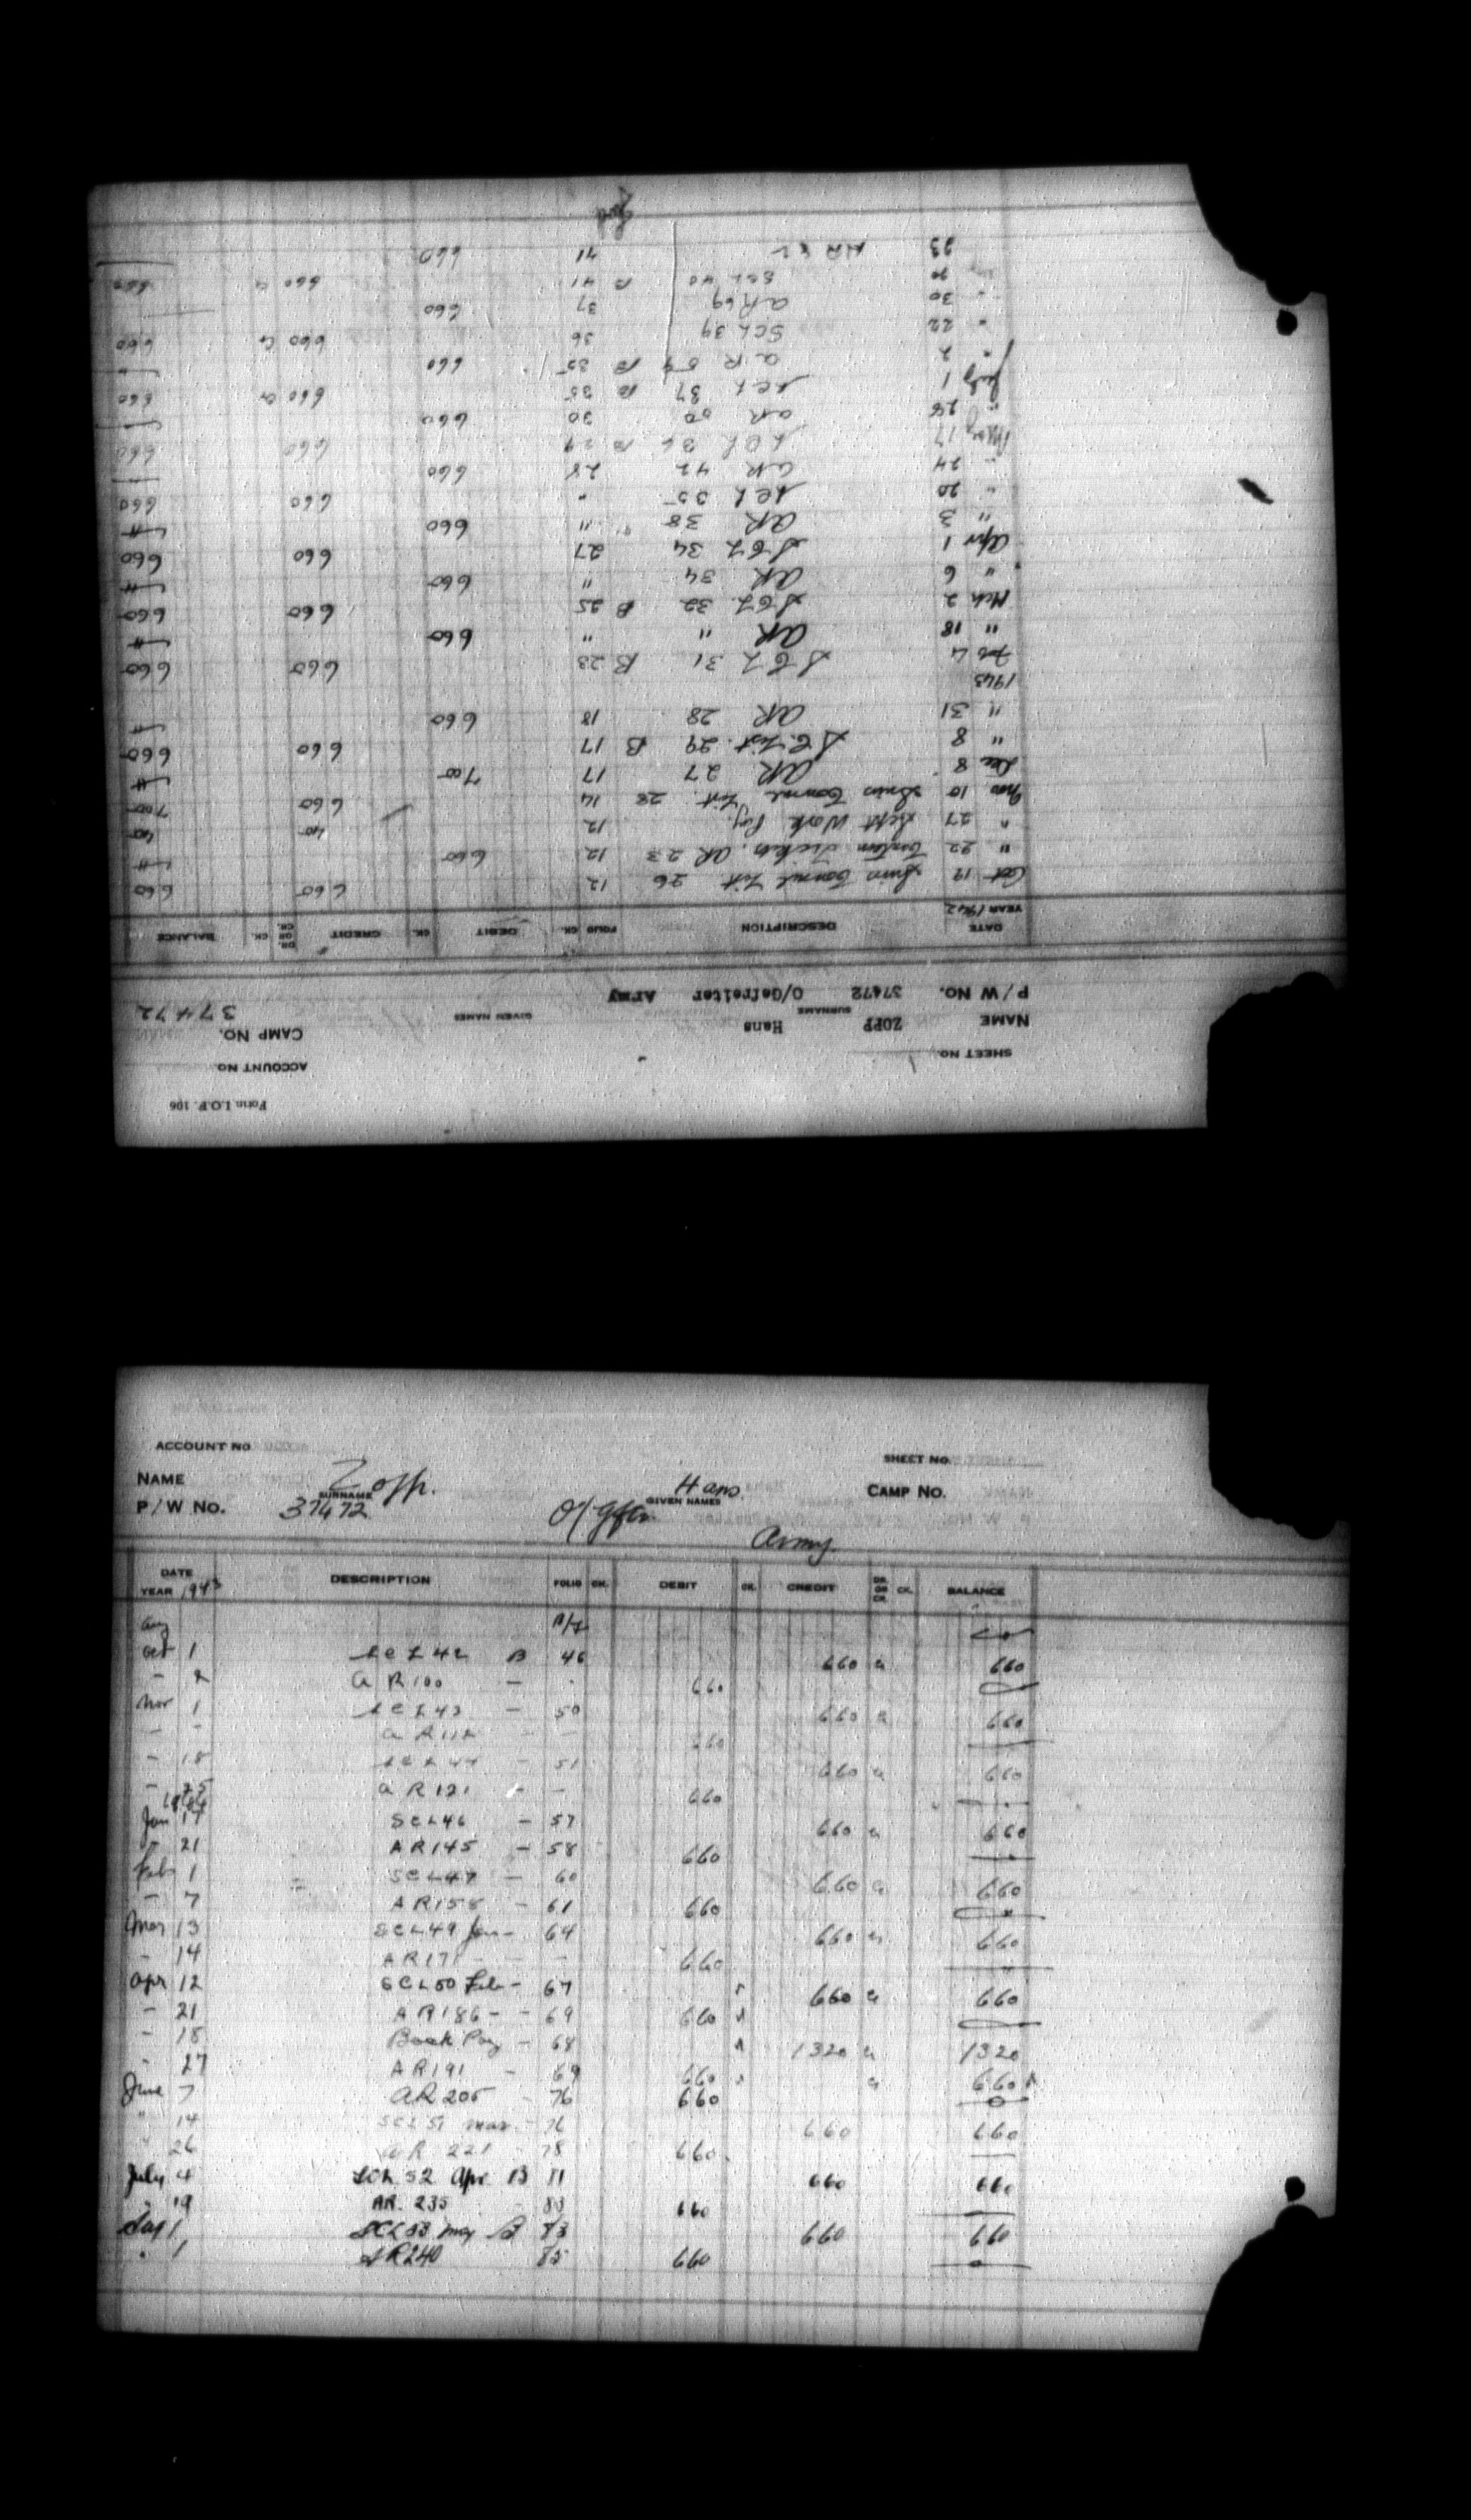 Form I.O.P. 106
ACCOUNT NO.
SHEET NO. 1
CAMP NO.
NAME ZOPP Hans
37472
SURNAME GIVEN NAMES
P/W NO. 37472 O/Gefreiter Army
DATE DESCRIPTION FOLIO CK. DEBIT CK. CREDIT DR. OR CR. CK. BALANCE
YEAR 1942
Oct 19 Swiss Consul List 26 12 660 660
" 22 Canteen Tickets AR 23 12 660
" 27 Sept Work Pay. 12 40 40
Nov 10 Swiss Consul List. 28 14 660 700
Dec 8 AR 27 17 700
" 8 S.C. List. 29 B 17 660 660
" 31 AR 28 18 660
1943
Feb 4 SCL 31 B 23 660 660
" 18 AR " " 660
Mch 2 SCL 32 B 25 660 660
" 6 AR 34 " 660
Apr 1 SCL 34 27 660 660
" 3 AR 38 " 660
" 20 SCL 35 " 660 660
" 24 AR 42 28 660
May 17 SCL 36 B 29 660 660
" 28 AR 50 30 660
July 1 SCL 37 B 35 660 Cr 660
" 2 AR 59 B 35 660
" 22 SCL 39 36 660 Cr 660
" 30 AR 69 37 660
20 SCL 40 B 41 660 Cr 660
23 AR 82 41 660
ACCOUNT NO
SHEET NO.
NAME Zopp. Hans
SURNAME GIVEN NAMES
CAMP NO.
P/W NO. 37472 O/Gftr Army
DATE DESCRIPTION FOLIO CK. DEBIT CK. CREDIT DR. OR CR. CK. BALANCE
YEAR 1943
Aug B/F
Oct 1 SCL 42 B 46 660 Cr 660
- 2 AR 100 - 660
Nov 1 SCL 43 - 50 660 Cr 660
- - AR 112 - - 660
- 18 SCL 44 - 51 660 Cr 660
- 25 AR 121 - - 660
1944
Jan 17 SCL 46 - 57 660 Cr 660
- 21 AR 145 - 58 660
Feb 1 SCL 47 - 60 660 Cr 660
- 7 AR 158 - 61 660
Mar 13 SCL 49 Jan - 64 660 Cr 660
- 14 AR 171 - - 660
Apr 12 SCL 50 Feb - 67 660 Cr 660
- 21 AR 186 - - 69 660
- 18 Back Pay - 68 1320 Cr 1320
- 27 AR 191 - 69 660 Cr 660
June 7 AR 205 - 76 660 0
" 14 SCL 51 Mar. - 76 660 660
" 26 AR 221 - 78 660
July 4 SCL 52 Apr B 81 660 660
" 19 AR. 235 83 660
1 SCL 53 May B 83 660 660
" 1 AR 240 85 660